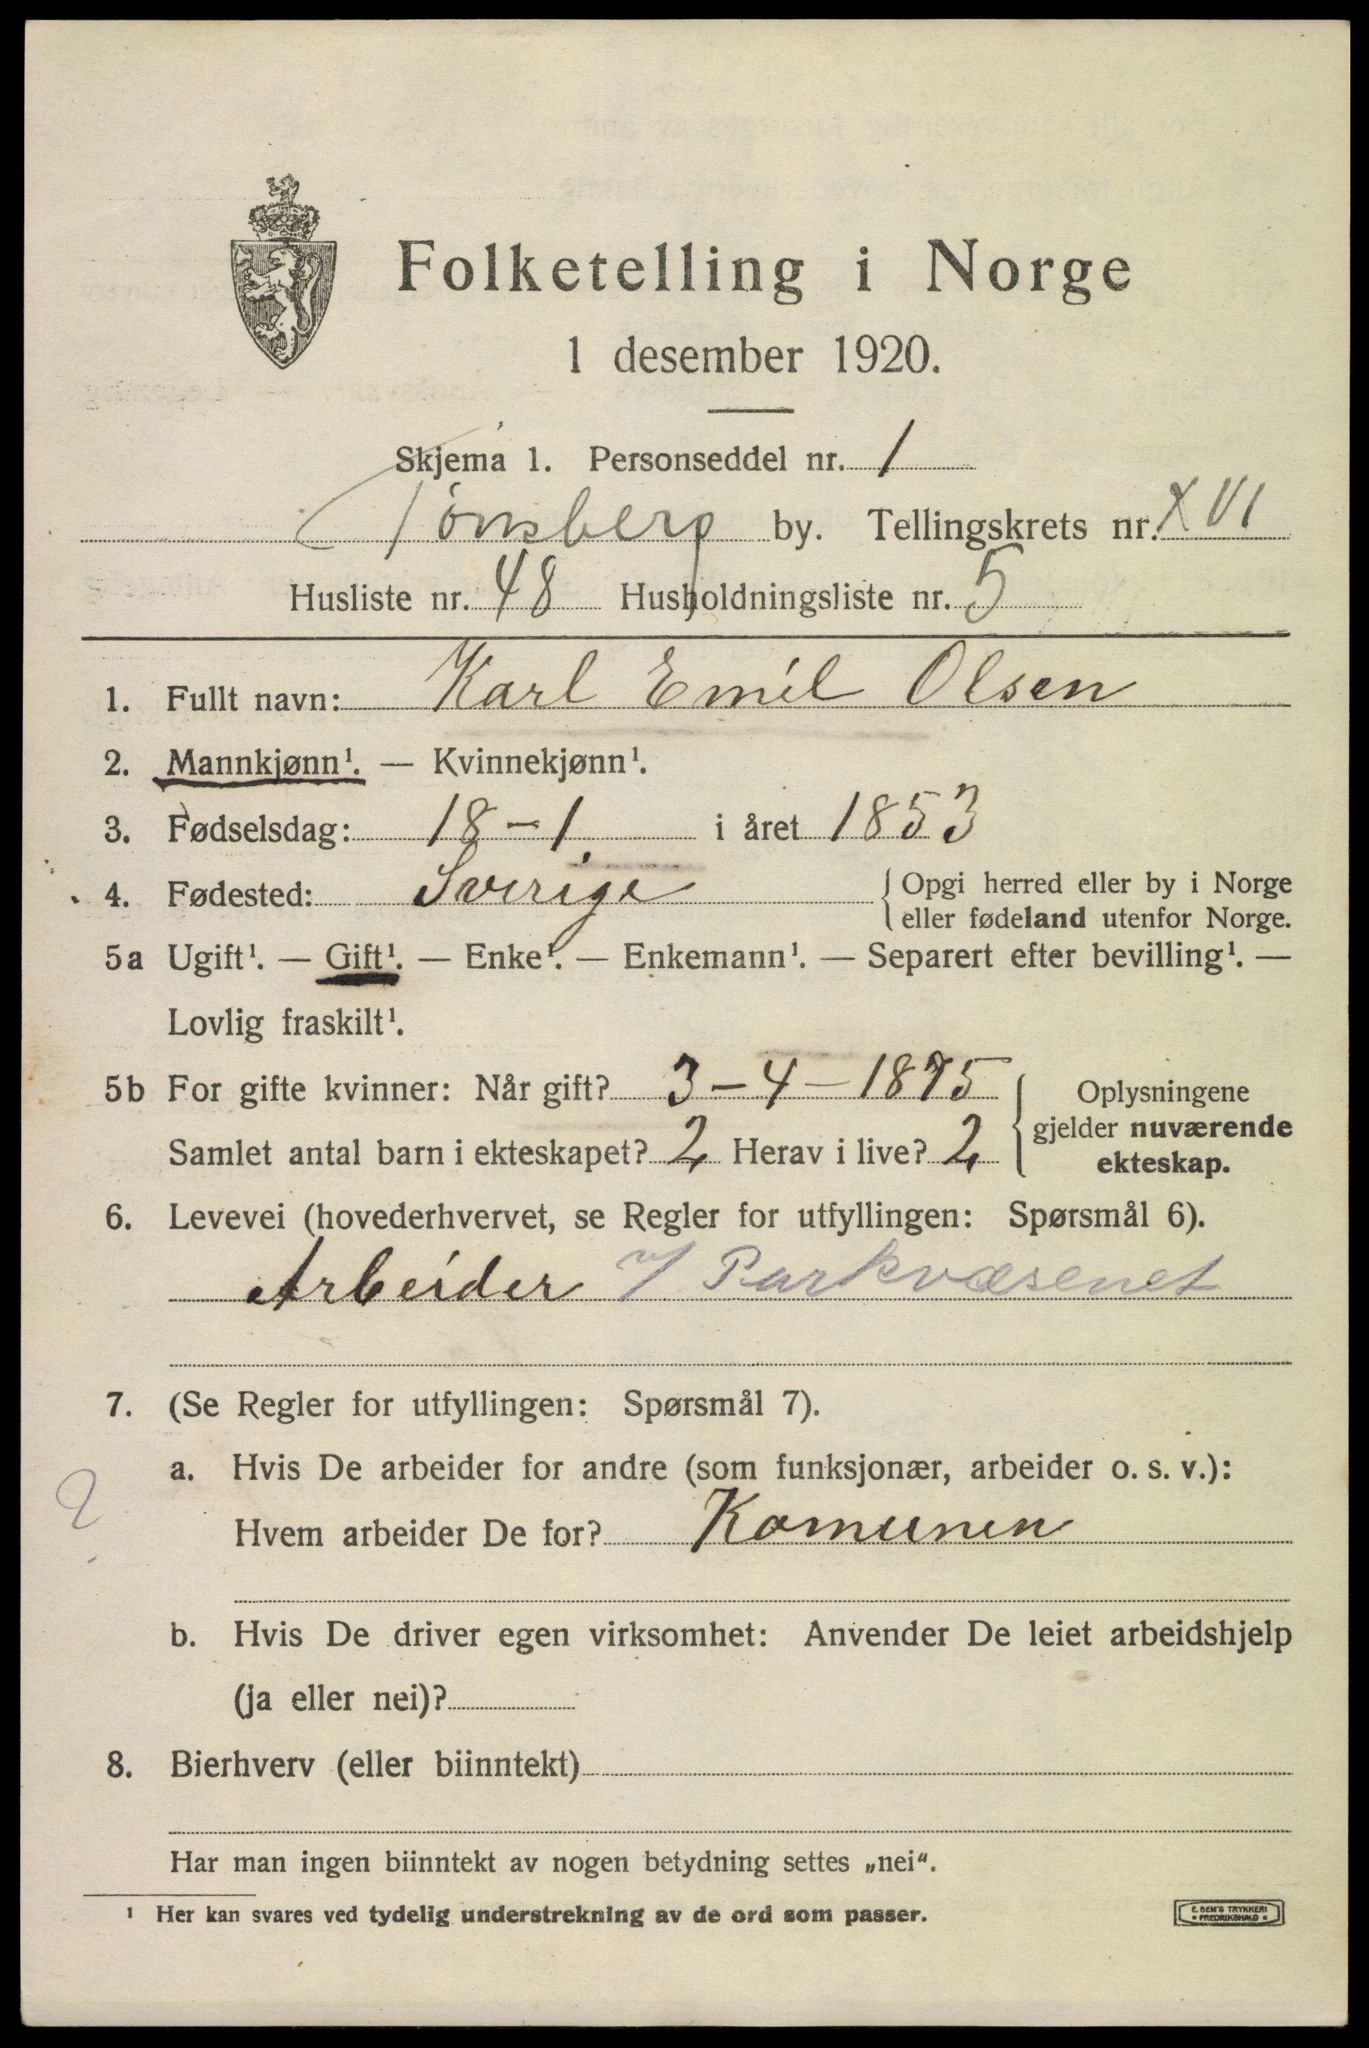 Folketelling i Norge
1 desember 1920.
Skjema 1. Personseddel nr. 1
Tønsberg by. Tellingskrets nr. XVI
Husliste nr. 48 Husholdningsliste nr. 5
1. Fullt navn: Karl Emil Olsen
2. Mannkjønn¹. — Kvinnekjønn¹.
3. Fødselsdag: 18-1 i året 1853
4. Fødested: Sverige { Opgi herred eller by i Norge
eller fødeland utenfor Norge.
5a Ugift¹. — Gift¹. — Enke¹. — Enkemann¹. — Separert efter bevilling¹. —
Lovlig fraskilt¹.
5b For gifte kvinner: Når gift? 3-4-1875 { Oplysningene
gjelder nuværende
Samlet antal barn i ekteskapet? 2 Herav i live? 2
ekteskap.
6. Levevei (hovederhvervet, se Regler for utfyllingen: Spørsmål 6).
Arbeider v/ Parkvæsenet
7. (Se Regler for utfyllingen: Spørsmål 7).
a. Hvis De arbeider for andre (som funksjonær, arbeider o. s. v.):
?
Hvem arbeider De for? Komunen
b. Hvis De driver egen virksomhet: Anvender De leiet arbeidshjelp
(ja eller nei)?
8. Bierhverv (eller biinntekt)
Har man ingen biinntekt av nogen betydning settes „nei“.
¹ Her kan svares ved tydelig understrekning av de ord som passer.
E. SEM'S TRYKKERI
FREDRIKSHALD